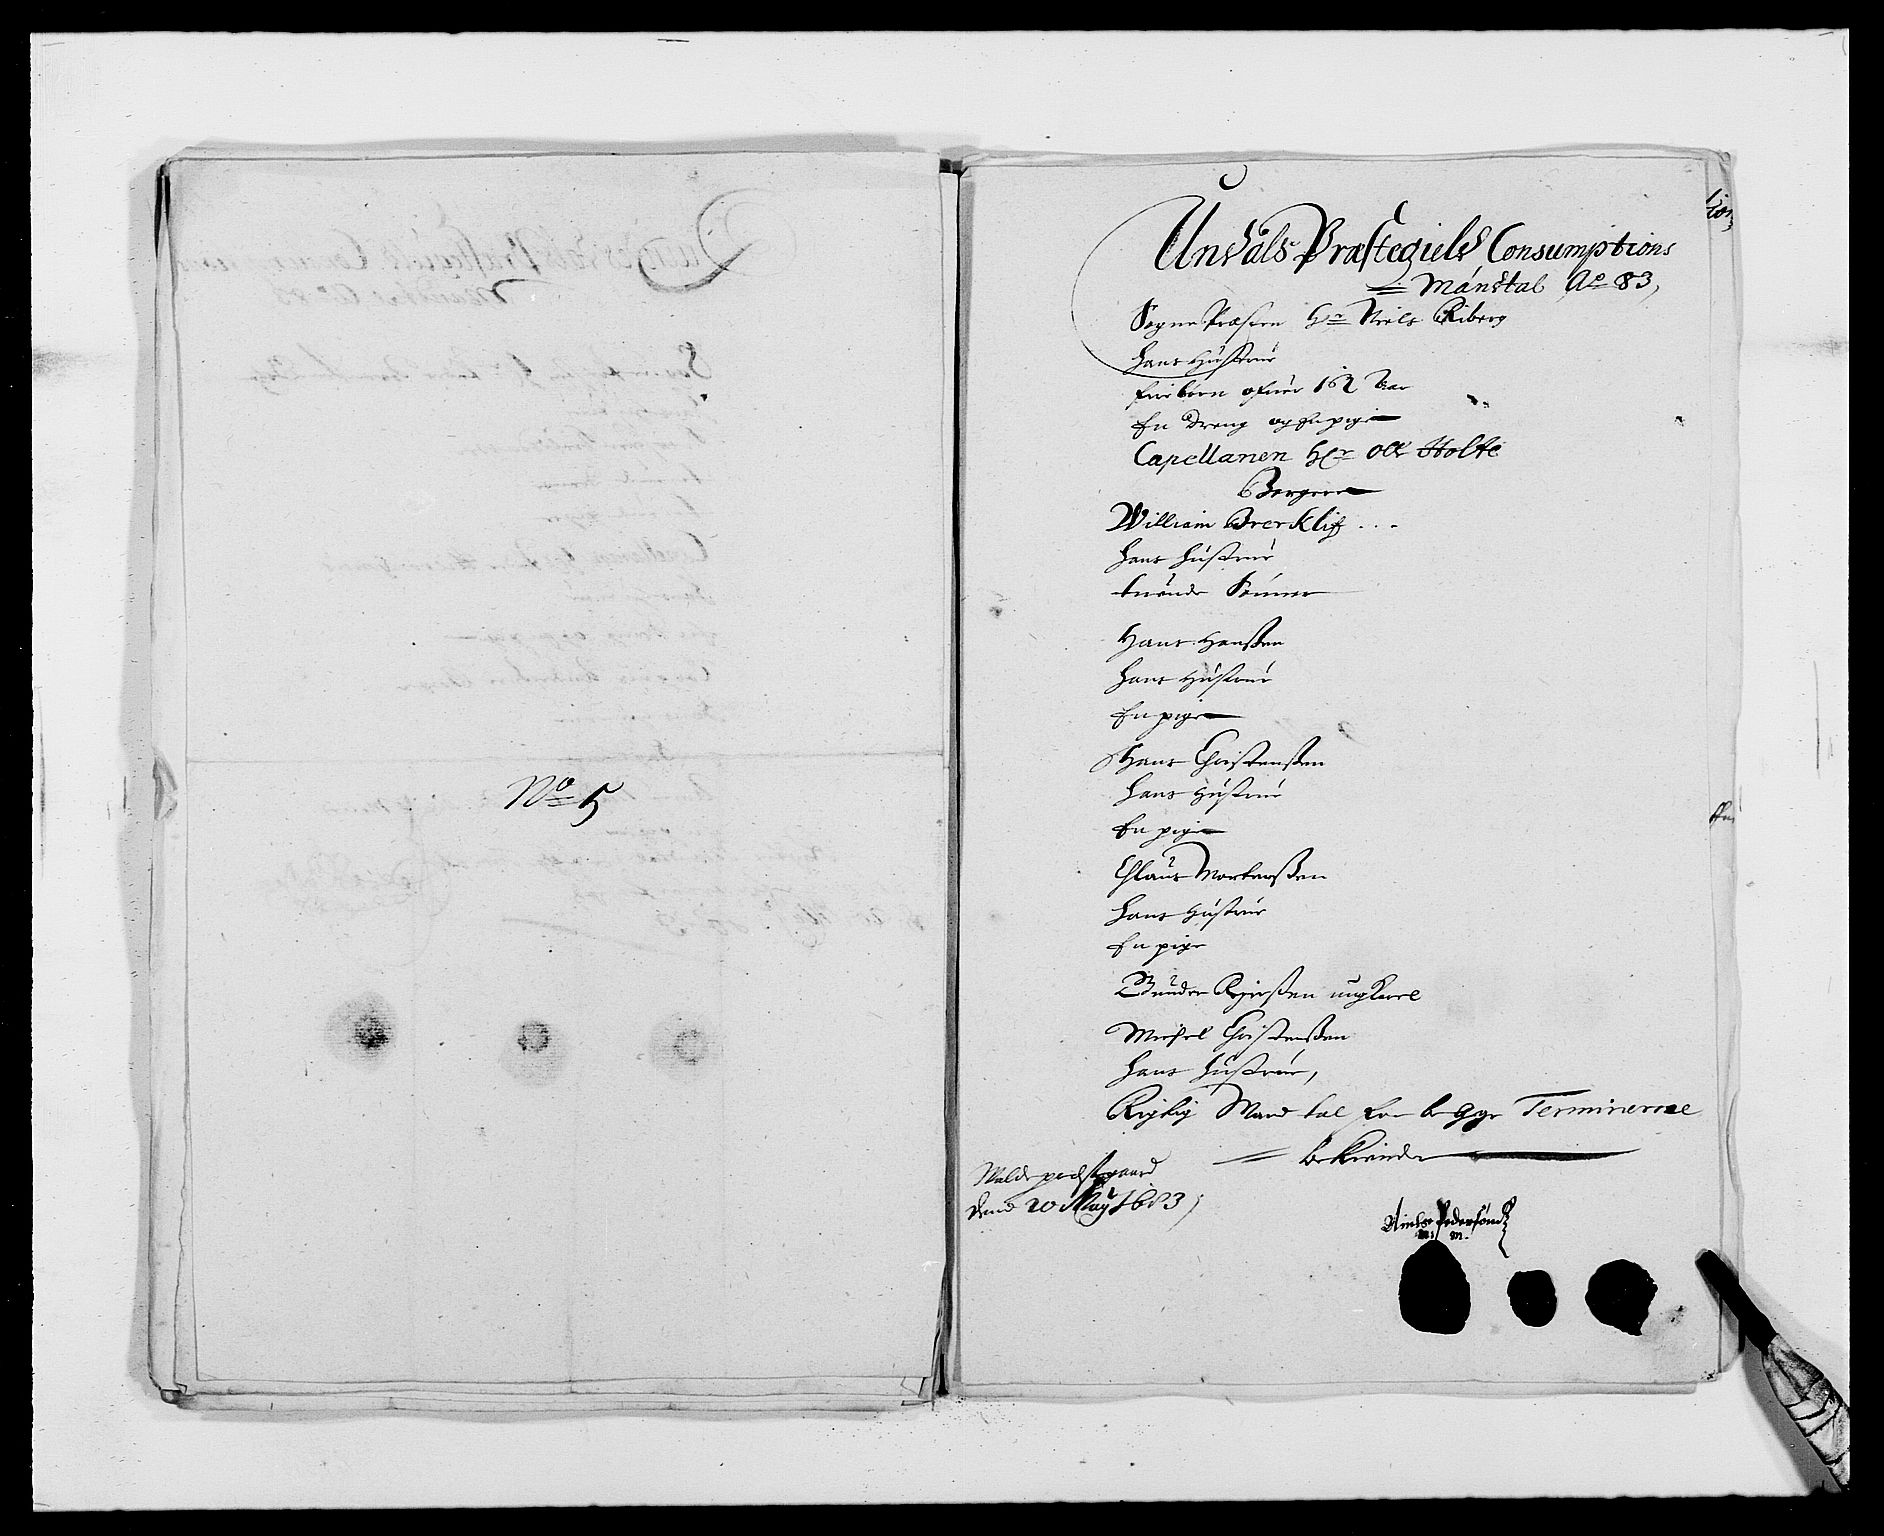 No 5
Undals Præstegields Consumptions
Mandtal Ao 83,
Sogne Præsten Hr Niels Riberg
hans Hustrue
fiire børn ofuer 162 Aar
En Dreng og En pige
Capellanen Hr Olle Holte
Borgere
William Brerklif ...
hans hustrue
tuende Sønner
Hans Hanßen
hans Hustrue
En pige
Hans Christenßen
hans Hustrue
En pige
Claus Mortenßen
hans Hustrue
En pige
Gunder ungkarl
Michel Christenßen
hans hustrue,
Rigtig Mandtal for begge Terminerne
bekiender
Walde prestegaard
dend 20 May 1683,
Niels Pedersøn